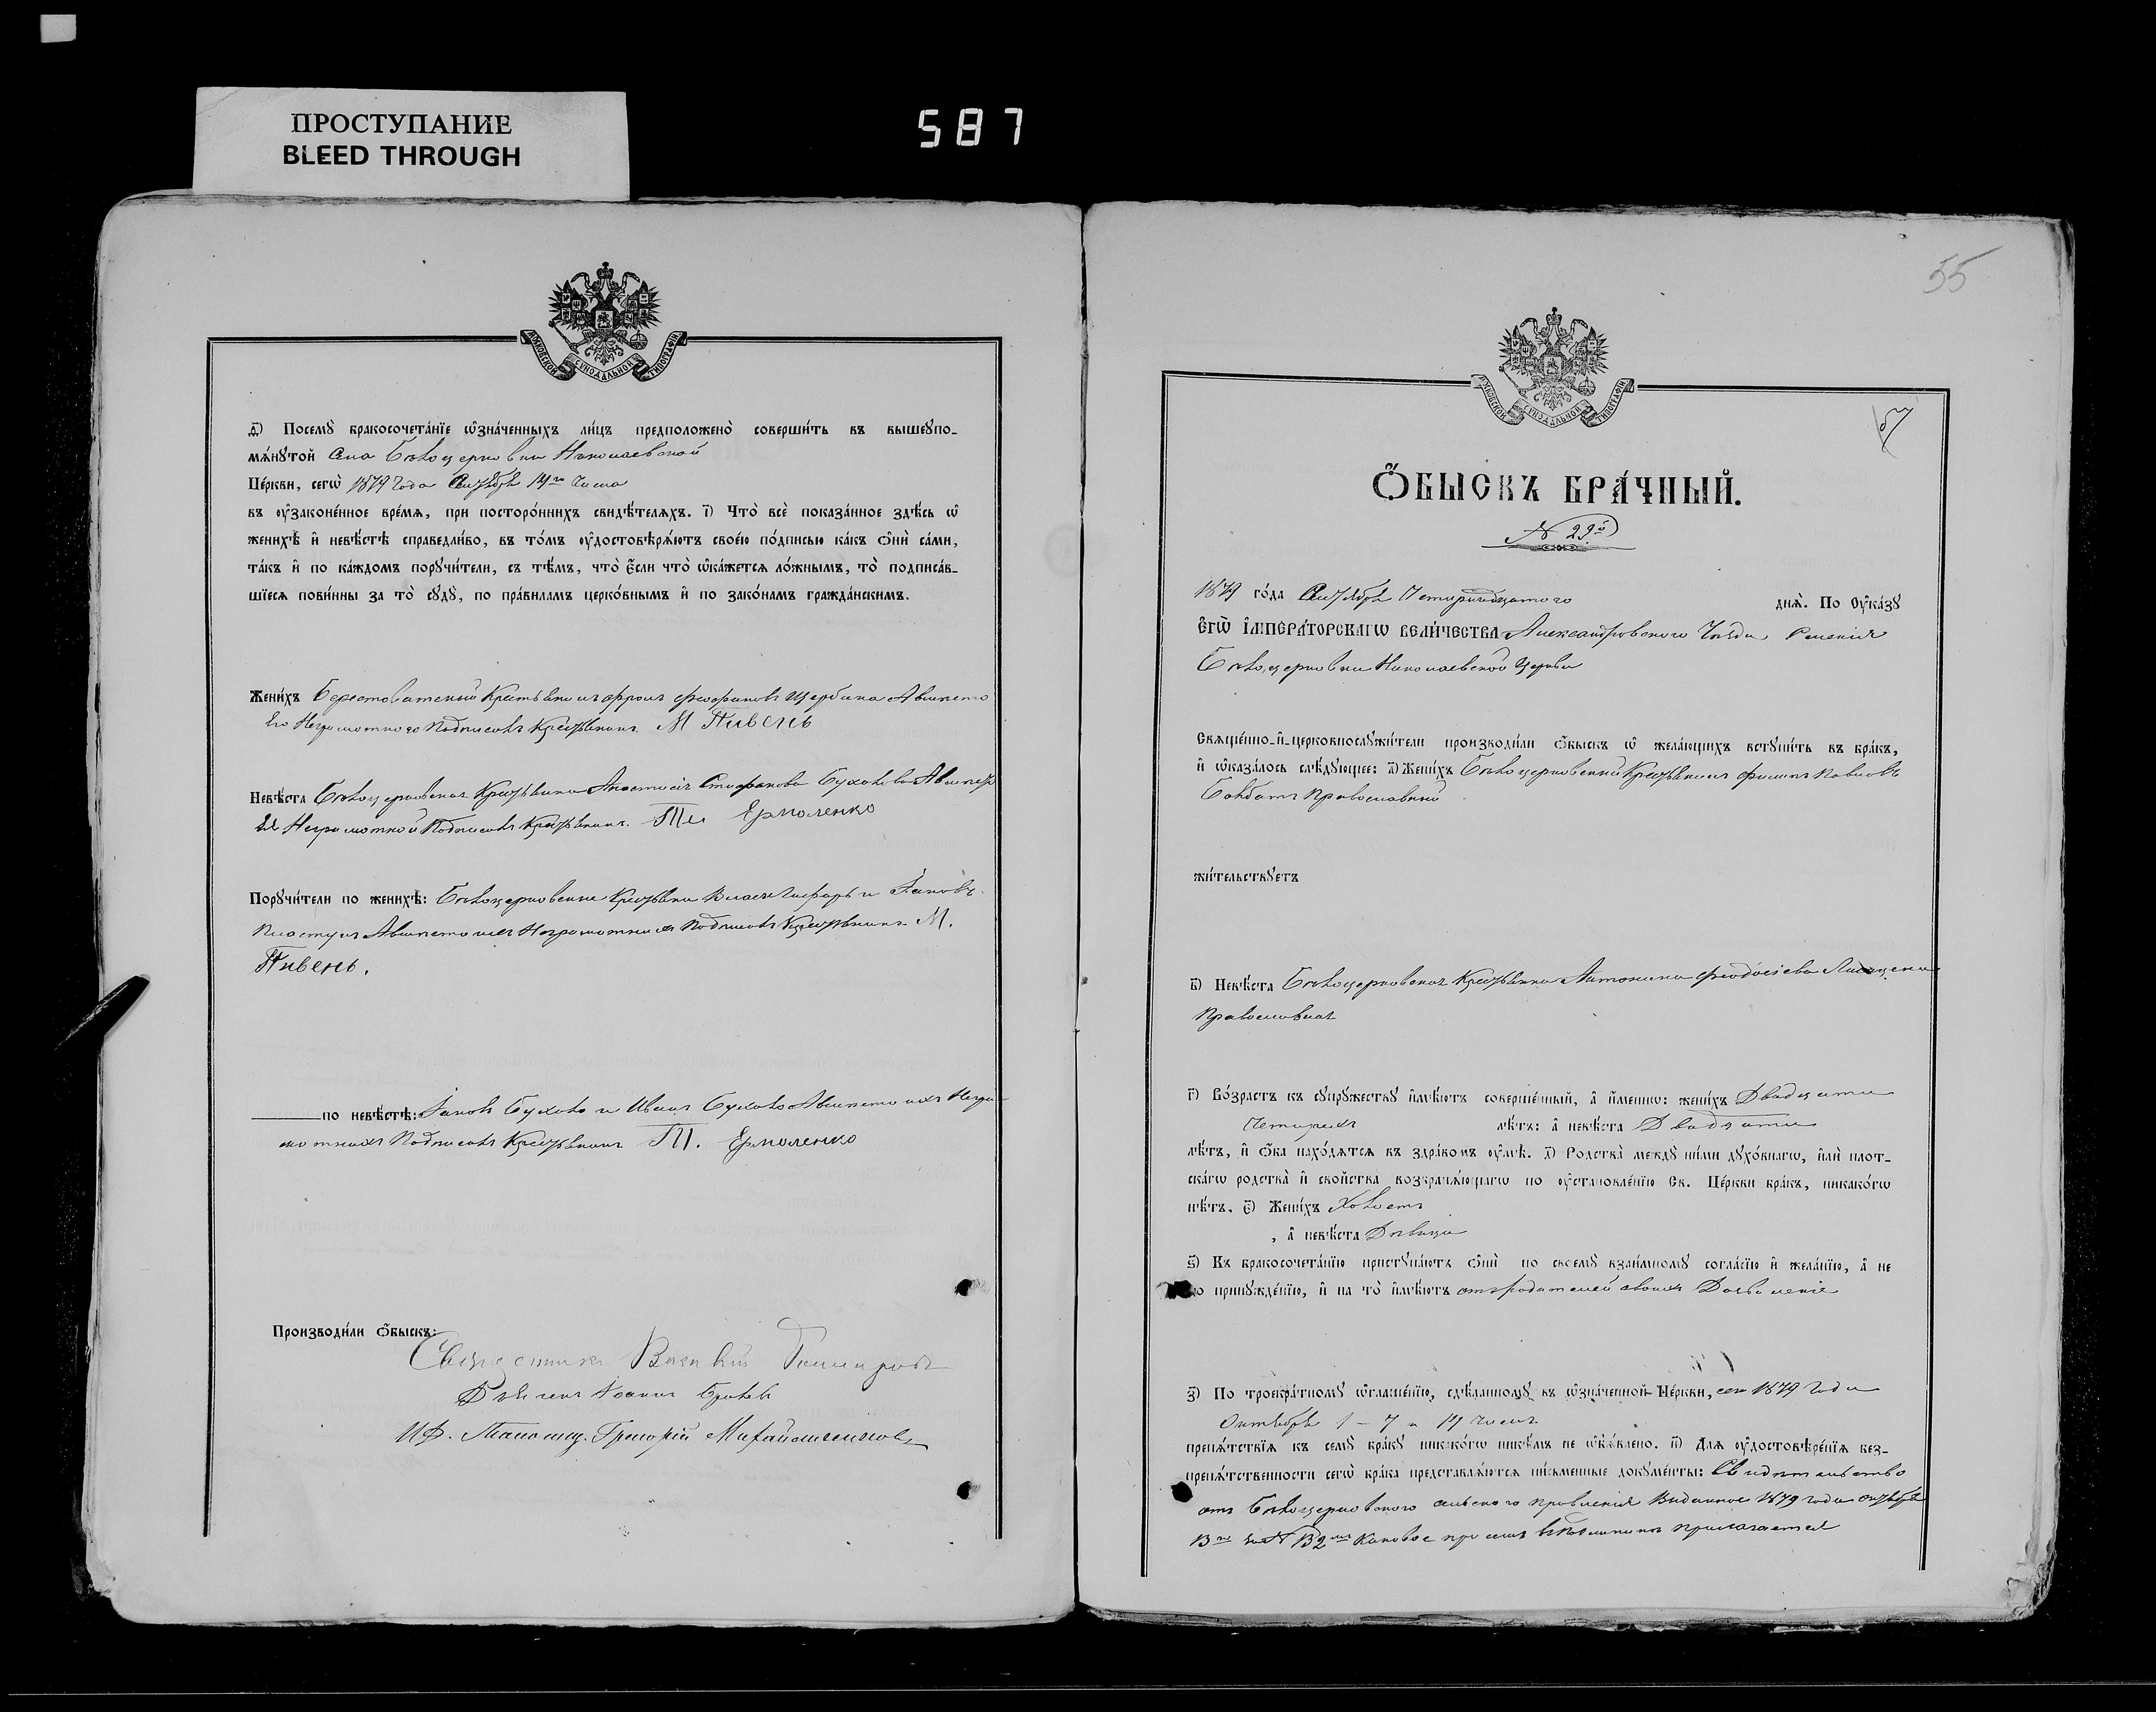 ПРОСТУПАНИЕ
BLEED THROUGH
587
МОСКОВСКОЙ СѴНОДАЛЬНОЙ ТИПОГРАФІИ
д҃) Посемꙋ̀ бракосочета́нїе ѡ҆зна́ченныхъ ли́цъ предположено̀ соверши́ть въ вышеꙋпо-
мѧ́нꙋтой села Бѣлоцерковки Николаевской
Це́ркви, сегѡ̀ 1879 года Октября 14го числа
въ ᲂу҆зако́нённое вре́мѧ, при посторо́ннихъ свидѣ́телѧхъ. і҃) Что̀ всѐ пока́занное здѣ́сь ѡ҆
женихѣ̀ и҆ невѣ́стѣ справедли́во, въ то́мъ ᲂу҆достовѣрѧ́ютъ свое́ю по́дписью ка́къ ѻ҆нѝ са́ми,
та́къ и҆ по ка́ждомъ порꙋчи́тели, съ тѣ́мъ, что̀ є҆́сли что̀ ѡ҆ка́жетсѧ ло́жнымъ, то̀ подписа́в-
шїесѧ пови́нны за то̀ сꙋдꙋ̀, по пра́виламъ церко́внымъ и҆ по зако́намъ гражда́нскимъ.
Жени́хъ Берестоватский Крестьянин Феофанов Щербина Авместо
Его Неграмотного Подписов Крестьянин М Пивень
Невѣ́ста Бѣлоцерковская Крестьянка Анастасія Стефанова Бухова Авместо
Ея Неграмотной Подписов Крестьянин Ермоленко
Порꙋчи́тели по женихѣ̀: Бѣлоцерковские Крестьяни и Іаков
Пластун Авместо их Неграмотних Подписов Крестьянин М.
Пивень.
по невѣ́стѣ: Іаков Бухова и Иван Бухова Авместо их Негра-
мотних Подписов Крестьянин Ермоленко
Производи́ли ѻ҆́быскъ:
Священник
Іоанн
И.Д. Григорій
55
МОСКОВСКОЙ СѴНОДАЛЬНОЙ ТИПОГРАФІИ
Ѻ҆́БЫСКЪ БРА́ЧНЫЙ.
№ 29й
1879 го́да Октября Четирнадцатого днѧ̀. По Оу҆ка́зꙋ
Є҆ГѠ̀ І҆МПЕРА́ТОРСКАГѠ ВЕЛИ́ЧЕСТВА Александровского Уезда Селения
Бѣлоцерковки Николаевской Церкви
Свѧще́нно-и҆-церковнослꙋжи́тели производи́ли ѻ҆́быскъ ѡ҆ жела́ющихъ встꙋпи́ть въ бра́къ,
и҆ ѡ҆каза́лось слѣ́дꙋющее: а҃) Жени́хъ Бѣлоцерковский Крестьянин Филип Павлов
Православний
жи́тельствꙋетъ
в҃) Невѣ́ста Бѣлоцерковская Крестьянка Антонина Феодосіева
Православная
г҃) Во́зрастъ къ сꙋпрꙋ́жествꙋ и҆мѣ́ютъ соверше́нный, а҆ и҆́меннѡ: жени́хъ Двадцати
Четирех лѣ́тъ: а҆ невѣ́ста Двадцати
лѣ́тъ, и҆ ѻ҆́ба нахо́дѧтсѧ въ здра́вомъ ᲂу҆мѣ̀. д҃) Родства̀ междꙋ̀ ни́ми дꙋхо́внагѡ, и҆лѝ плот-
ска́гѡ родства̀ и҆ свойства̀ возбранѧ́ющагѡ по ᲂу҆становле́нїю Св. Це́ркви бра́къ, никако́гѡ
нѣ́тъ. є҃) Жени́хъ Холост
, а҆ невѣ́ста Дѣвица
ѕ҃) Къ бракосочета́нїю пристꙋпа́ютъ ѻ҆нѝ по своемꙋ̀ взаи́мномꙋ согла́сїю и҆ жела́нїю, а҆ не
по принꙋжде́нїю, и҆ на то̀ и҆мѣ́ютъ отъ родителей своих Дозволение
з҃) По троекра́тномꙋ ѡ҆глаше́нїю, сдѣ́ланномꙋ въ ѡ҆зна́ченной Це́ркви, сего 1879 года
Октября 1 – 7 и 14 числ
препѧ́тствїѧ къ семꙋ̀ бра́кꙋ никако́гѡ никѣ́мъ не ѡ҆б̾ѧ́влено. и҃) Длѧ ᲂу҆достовѣре́нїѧ без-
препѧ́тственности сегѡ̀ бра́ка представлѧ́ютсѧ пи́сьменные докꙋме́нты: Свидетельство
отъ Бѣлоцерковского сельского правления Виданное 1879 года октября
каковое при сем вподлиннике прилагается